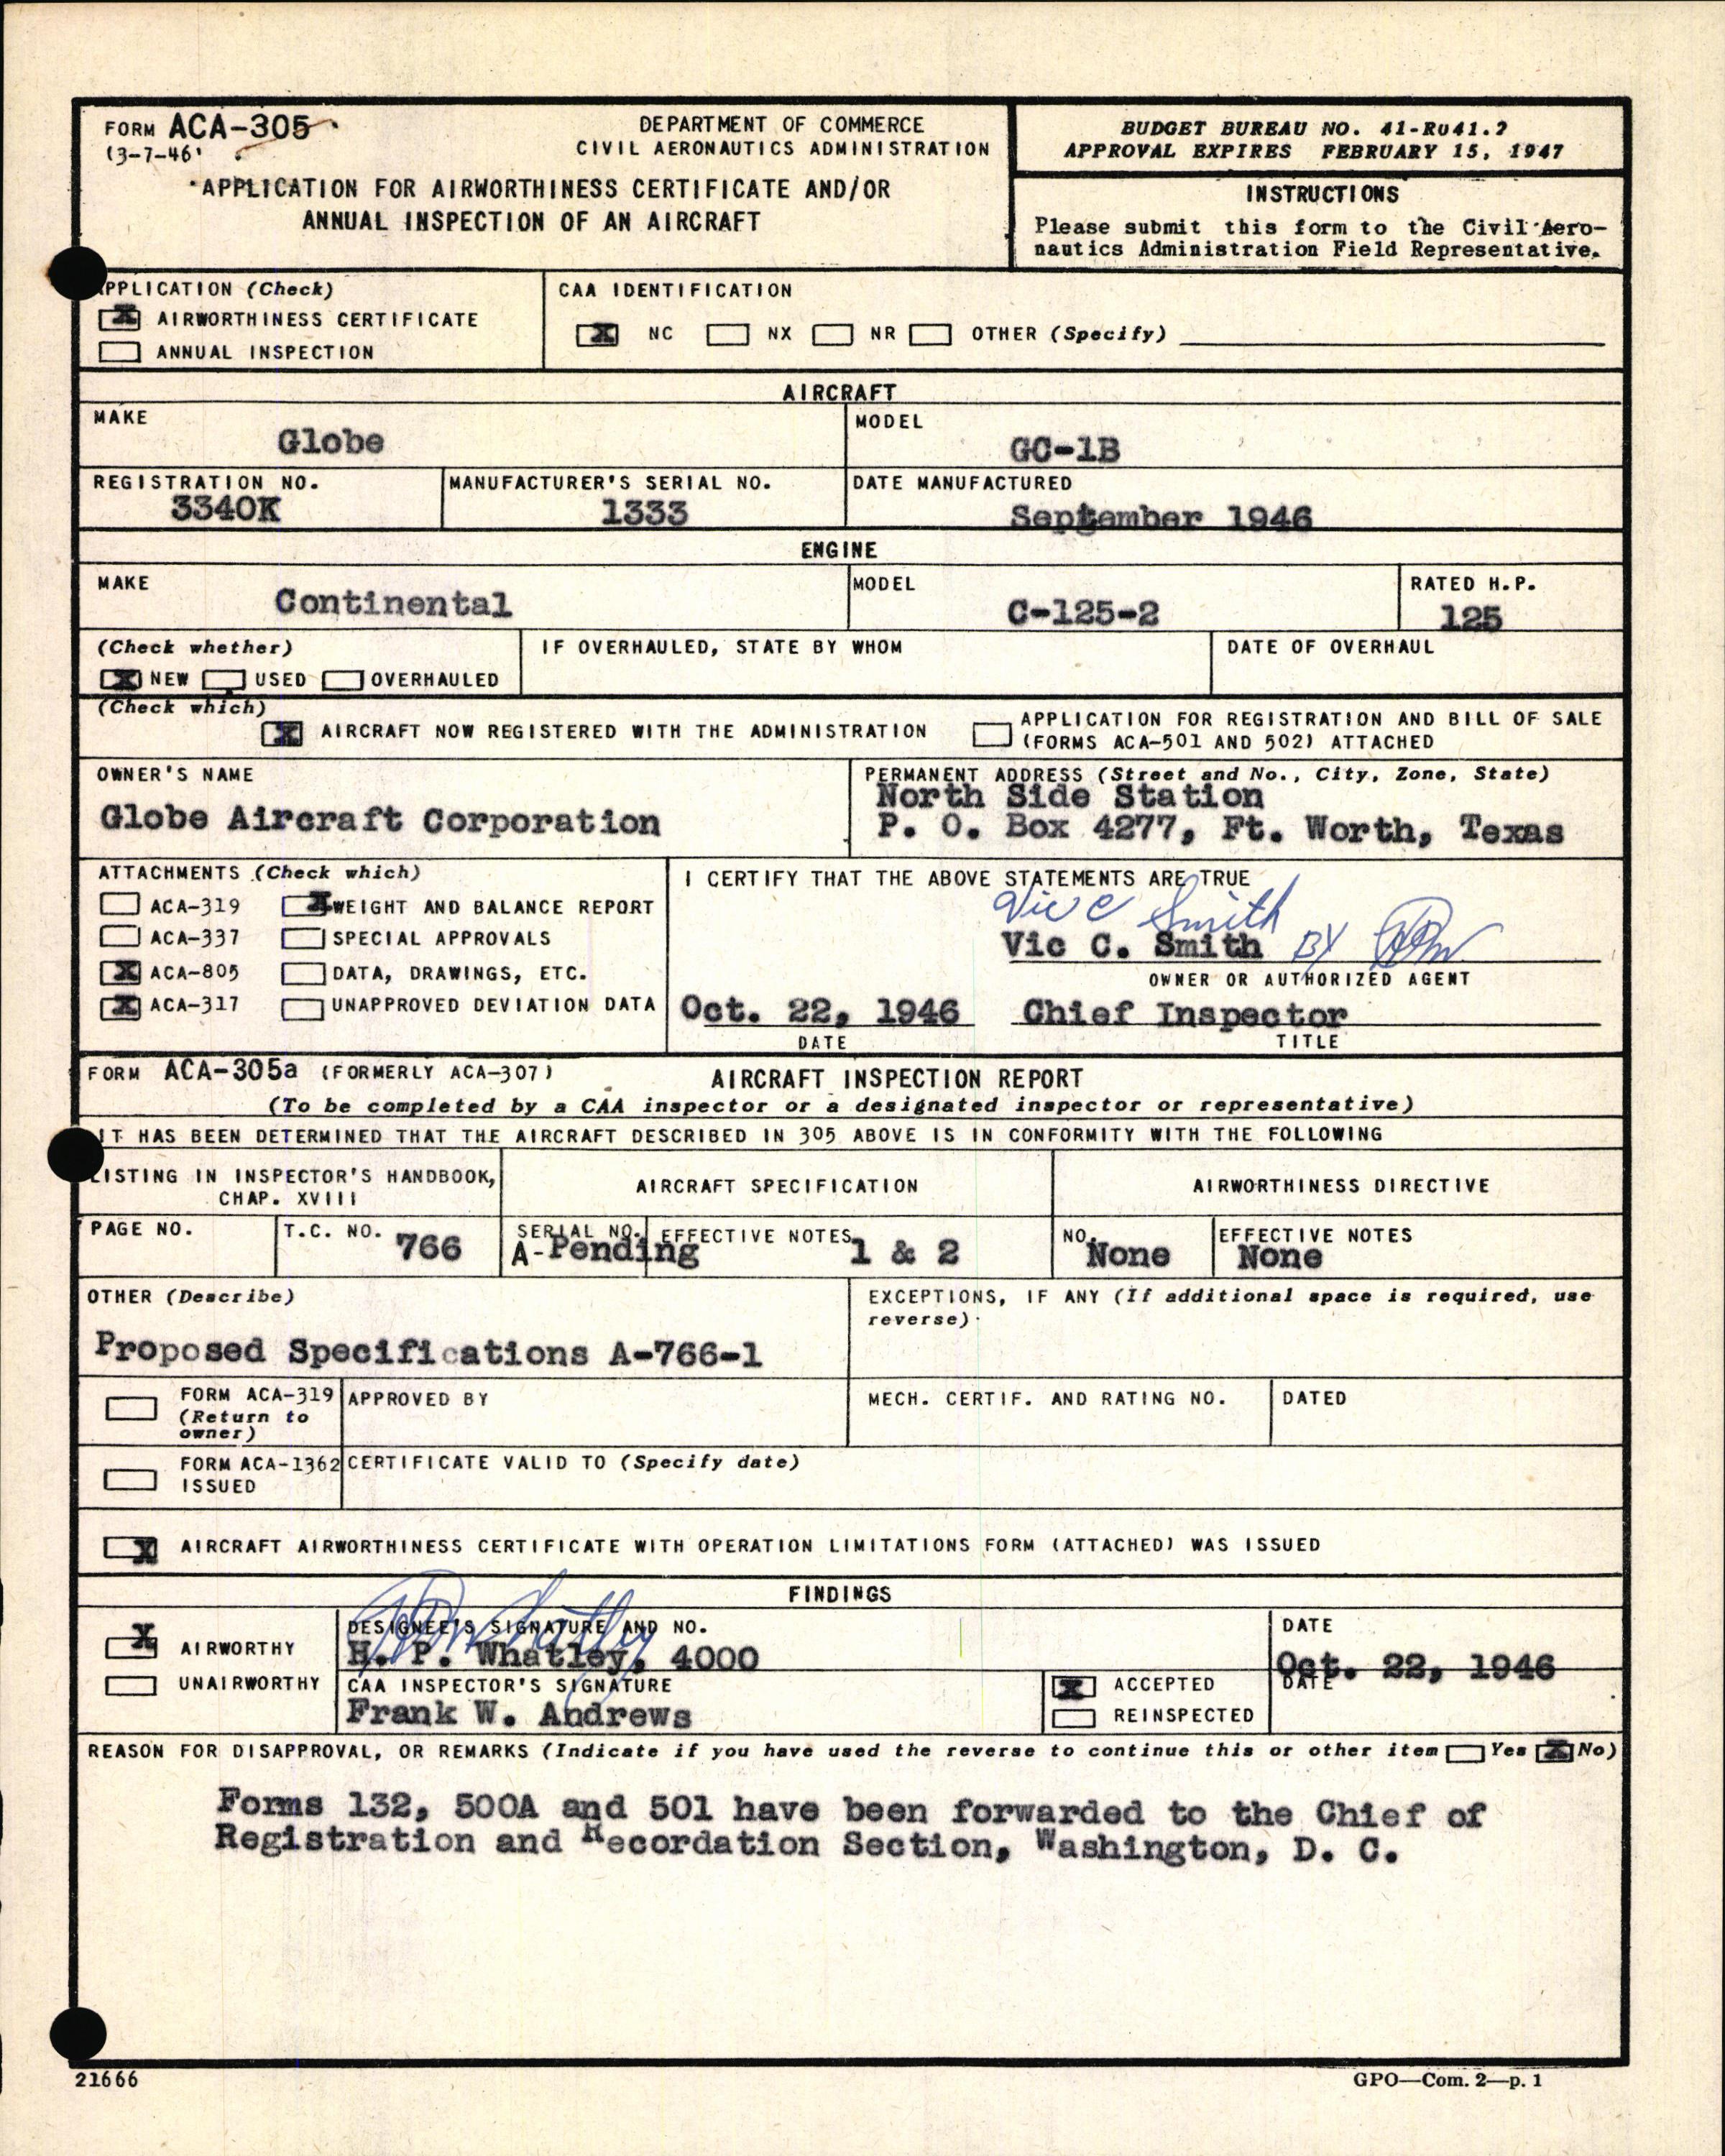 FORM ACA-305
(3-7-46)
DEPARTMENT OF COMMERCE
CIVIL AERONAUTICS ADMINISTRATION
APPLICATION FOR AIRWORTHINESS CERTIFICATE AND/OR
ANNUAL INSPECTION OF AN AIRCRAFT
BUDGET BUREAU NO. 41-R041.2
APPROVAL EXPIRES FEBRUARY 15, 1947
INSTRUCTIONS
Please submit this form to the Civil Aero-
nautics Administration Field Representative.
APPLICATION (Check)
X AIRWORTHINESS CERTIFICATE
ANNUAL INSPECTION
CAA IDENTIFICATION
X NC NX NR OTHER (Specify)
AIRCRAFT
MAKE
Globe
MODEL
GC-1B
REGISTRATION NO.
3340K
MANUFACTURER'S SERIAL NO.
1333
DATE MANUFACTURED
September 1946
ENGINE
MAKE
Continental
MODEL
C-125-2
RATED H.P.
125
(Check whether)
X NEW USED OVERHAULED
IF OVERHAULED, STATE BY WHOM
DATE OF OVERHAUL
(Check which)
X AIRCRAFT NOW REGISTERED WITH THE ADMINISTRATION
APPLICATION FOR REGISTRATION AND BILL OF SALE
(FORMS ACA-501 AND 502) ATTACHED
OWNER'S NAME
Globe Aircraft Corporation
PERMANENT ADDRESS (Street and No., City, Zone, State)
North Side Station
P. O. Box 4277, Ft. Worth, Texas
ATTACHMENTS (Check which)
ACA-319 X WEIGHT AND BALANCE REPORT
ACA-337 SPECIAL APPROVALS
X ACA-805 DATA, DRAWINGS, ETC.
X ACA-317 UNAPPROVED DEVIATION DATA
I CERTIFY THAT THE ABOVE STATEMENTS ARE TRUE
Vic C Smith
Vic C. Smith BY
OWNER OR AUTHORIZED AGENT
Oct. 22, 1946 Chief Inspector
DATE TITLE
FORM ACA-305a (FORMERLY ACA-307) AIRCRAFT INSPECTION REPORT
(To be completed by a CAA inspector or a designated inspector or representative)
IT HAS BEEN DETERMINED THAT THE AIRCRAFT DESCRIBED IN 305 ABOVE IS IN CONFORMITY WITH THE FOLLOWING
LISTING IN INSPECTOR'S HANDBOOK,
CHAP. XVIII
AIRCRAFT SPECIFICATION
AIRWORTHINESS DIRECTIVE
PAGE NO.
T.C. NO. 766
SERIAL NO.
A-Pending
EFFECTIVE NOTES
1 & 2
NO.
None
EFFECTIVE NOTES
None
OTHER (Describe)
Proposed Specifications A-766-1
EXCEPTIONS, IF ANY (If additional space is required, use
reverse).
FORM ACA-319
(Return to
owner)
APPROVED BY
MECH. CERTIF. AND RATING NO.
DATED
FORM ACA-1362
ISSUED
CERTIFICATE VALID TO (Specify date)
X AIRCRAFT AIRWORTHINESS CERTIFICATE WITH OPERATION LIMITATIONS FORM (ATTACHED) WAS ISSUED
FINDINGS
X AIRWORTHY
UNAIRWORTHY
DESIGNEE'S SIGNATURE AND NO.
H. P. Whatley, 4000
DATE
Oct. 22, 1946
CAA INSPECTOR'S SIGNATURE
Frank W. Andrews
X ACCEPTED
REINSPECTED
DATE
REASON FOR DISAPPROVAL, OR REMARKS (Indicate if you have used the reverse to continue this or other item Yes X No)
Forms 132, 500A and 501 have been forwarded to the Chief of
Registration and Recordation Section, Washington, D. C.
21666
GPO—Com. 2—p. 1